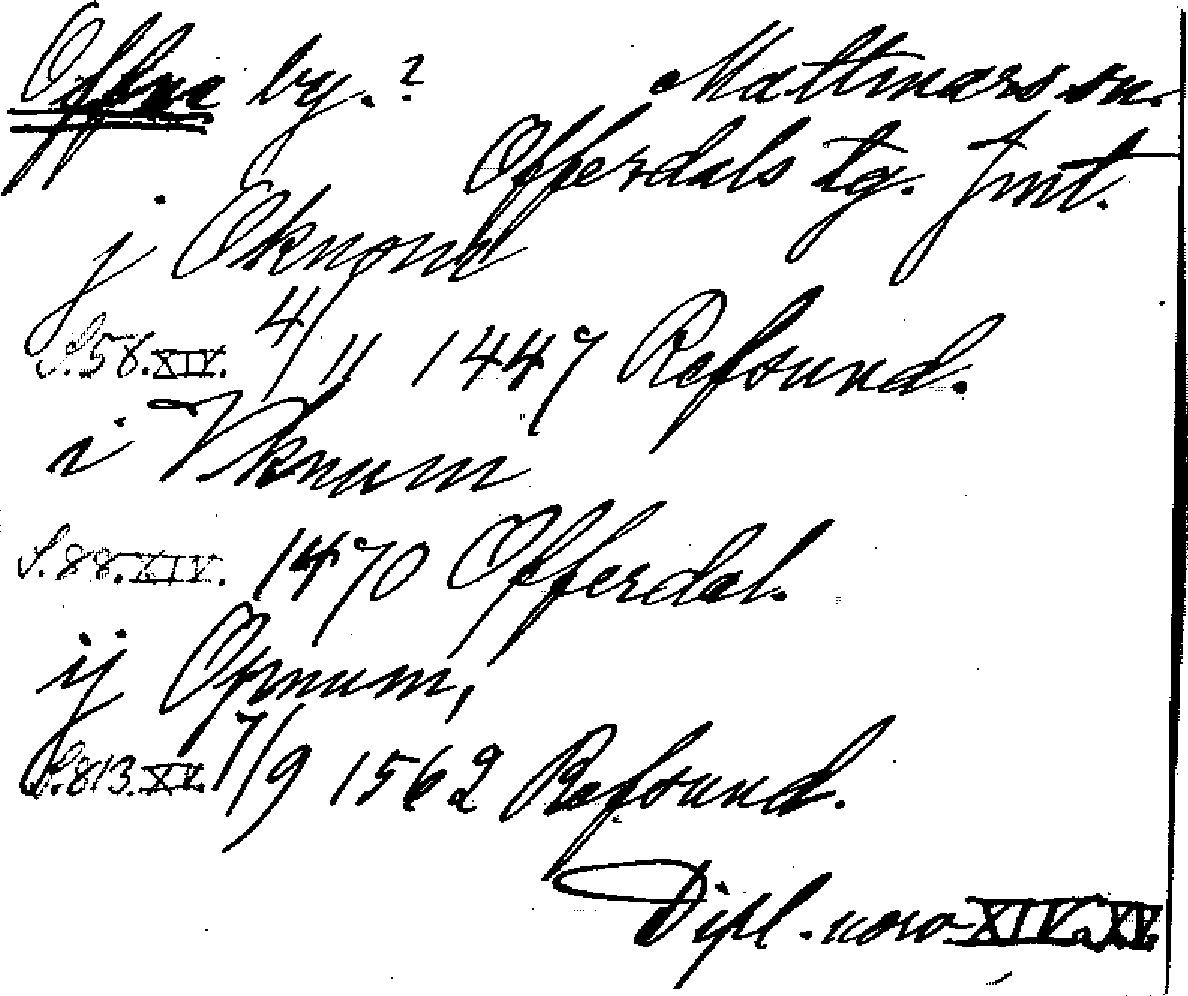 Offne by.? Mattmars sn.
Offerdals tg. Jmt.
j Oknom
S.58.XIV. 4/11 1447 Refsund.
i Vknum
S.88.XIV. 1470 Offerdal.
ij Opnum,
S.813.XV. 7/9 1562 Refsund.
Dipl. norv. XIV. XV.